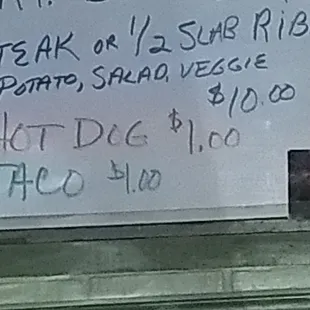 TEAK OR 1/2 SLAB RIB
POTATO, SALAD, VEGGIE
$10.00
HOT DOG $1.00
TACO $1.00